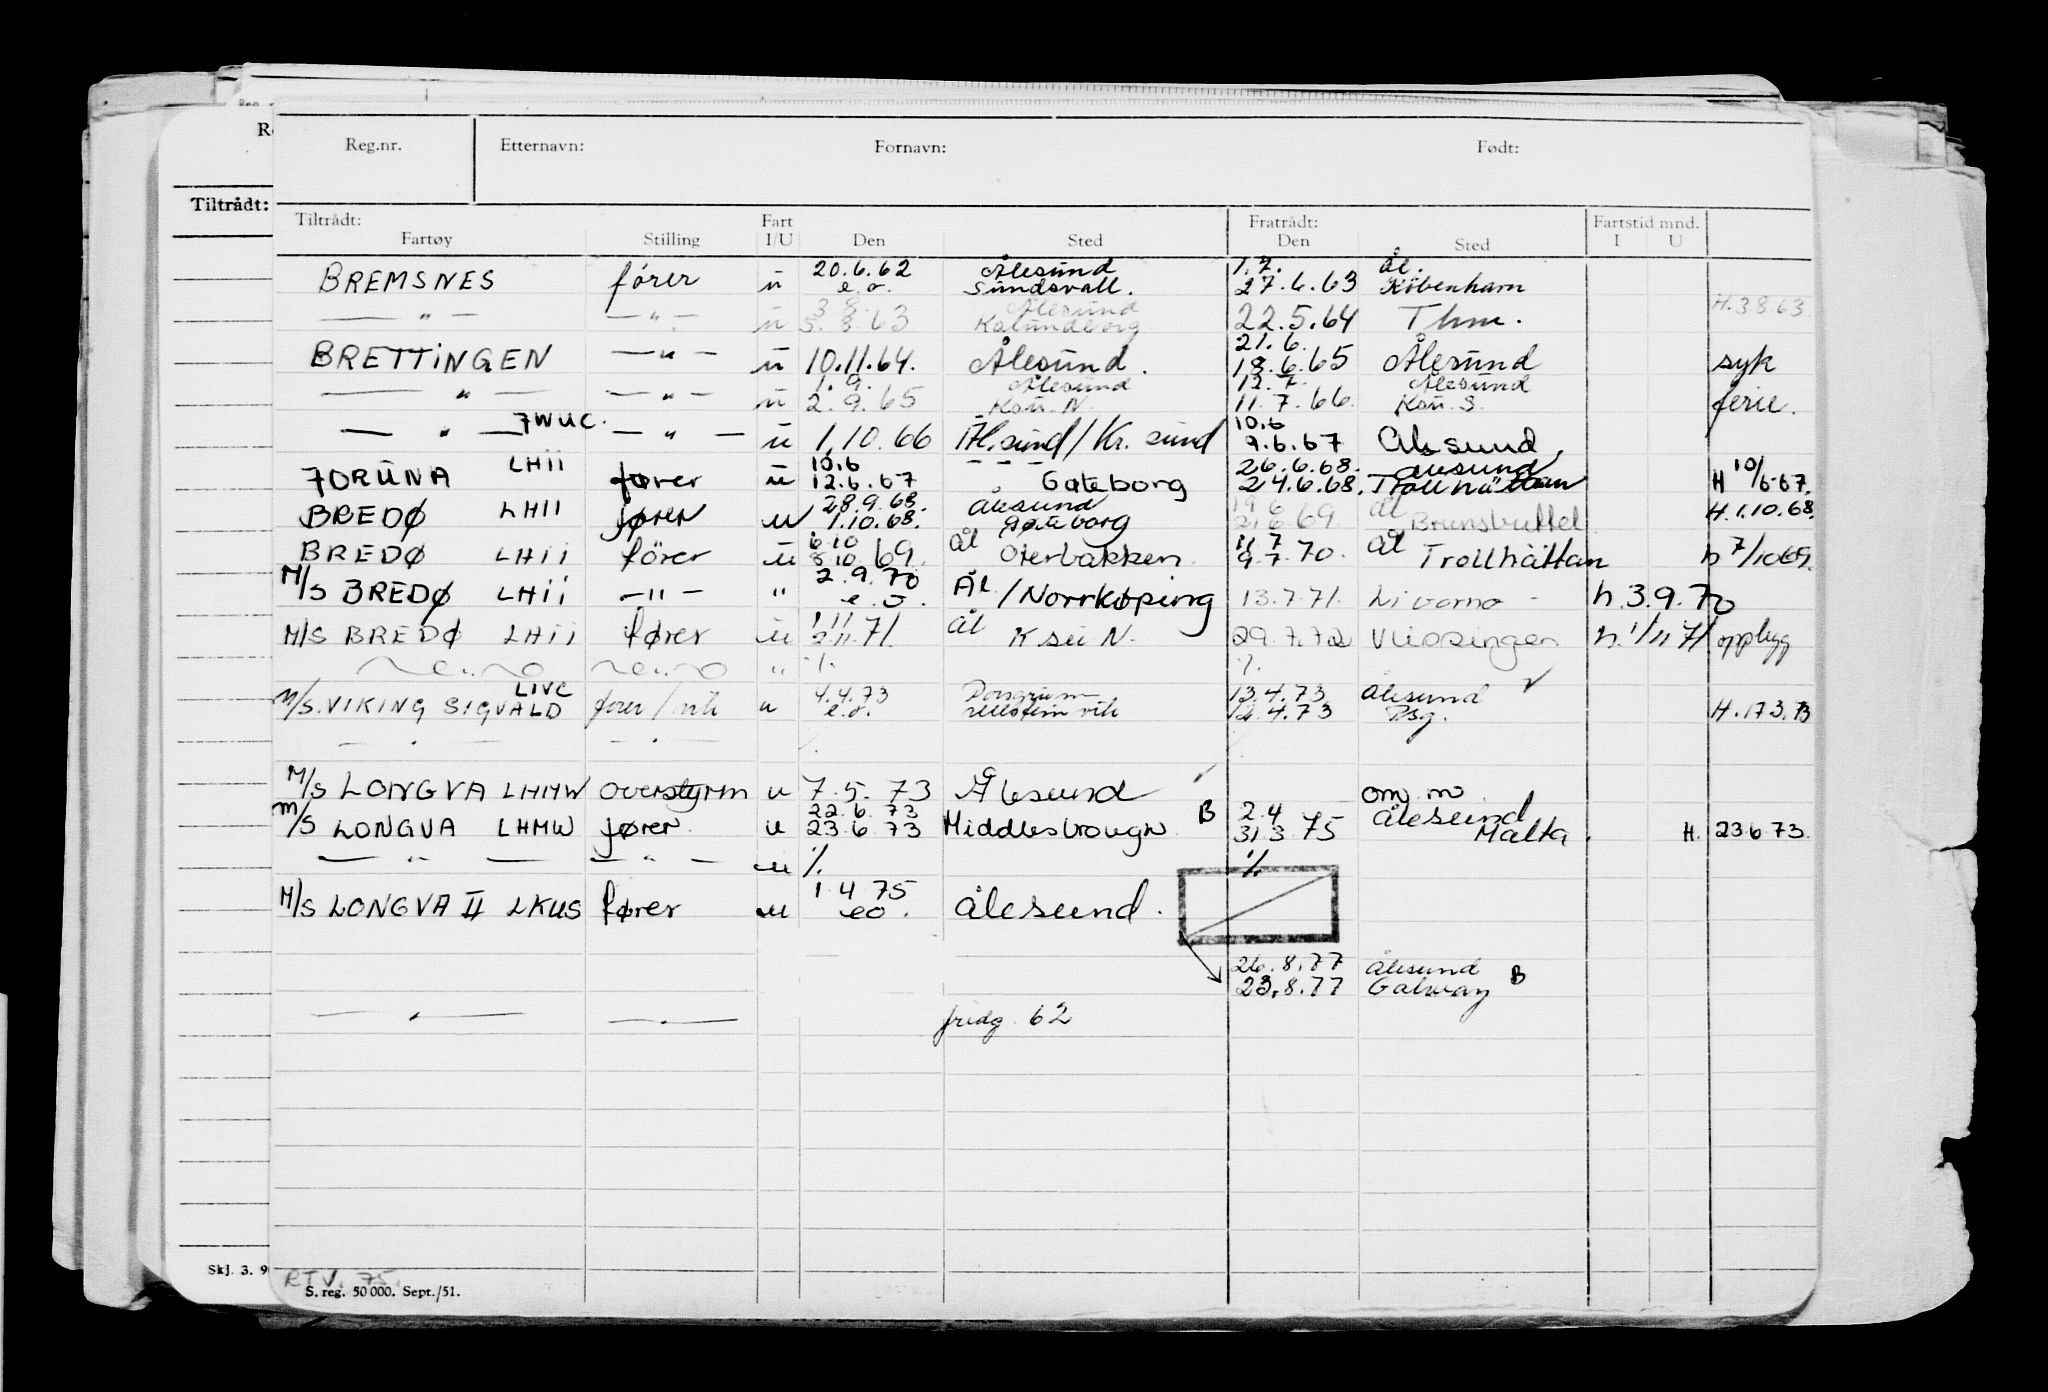 Reg.nr. Etternavn: Fornavn: Født:
Tiltrådt:
Tiltrådt: Fart Fratrådt: Fartstid mnd.
Fartøy Stilling I/U Den Sted Den Sted I U
20.6.62 Ålesund 1.7. Ål.
BREMSNES fører u e.o. Sundsvall. 27.6.63 København
3.8. Ålesund H.3.8.63
— " — — " — u 5.8.63 Kalundborg 22.5.64 Thm.
21.6.
BRETTINGEN — " — u 10.11.64. Ålesund. 18.6.65 Ålesund syk
1.9. Ålesund 12.7. Ålesund
— " — — " — u 2.9.65 Ksu. N. 11.7.66. Ksu. S. ferie.
7WUC. 10.6
— " — — " — u 1.10.66 Ål.sund/Kr. sund 9.6.67 Ålesund.
10.6 — — — 26.6.68. Ålesund
TORUNA LHII fører u 12.6.67 Gøteborg 24.6.68. Trollhättan H 10/6-67.
28.9.68. Ålesund 19 6 Ål
BREDØ LHII fører u 1.10.68. Gøteborg 21.6.69. Brunsbuttel H.1.10.68.
6 10 Ål 11 7 Ål
BREDØ LHII fører u 8 10 69. Oterbakken. 9.7.70. Trollhättan h 7/10 69.
2.9.70
M/S BREDØ LHII — " — " e.o. Ål./Norrkøping 13.7.71. Livorno h.3.9.70
1/11 Ål
M/S BREDØ LHII fører u 2.11.71. K su N. 29.7.72 Vlissingen h. 1/11 71. opplegg
" ·/. ·/.
LIVC 4.4.73 13.4.73 Ålesund
M/S. VIKING SIGVALD fører / u e.o. 12.4.73 H.17.3.B
— " — — " —
M/S LONGVA LHMW overstyrm u 7.5.73 Ålesund om m
22.6.73 B 2.4 Ålesund
M/S LONGVA LHMW fører u 23 6 73 Middlesbrough 31 3 75 Malta. H. 23 6 73.
— " — — " — u ·/. ·/.
1 4 75
M/S LONGVA II LKUS fører u eo. Ålesund.
26.8.77 Ålesund
23.8.77 Galway B
— " — — " — fridg. 62
Skj. 3. 9
RTV. 75.
S. reg. 50 000. Sept./51.